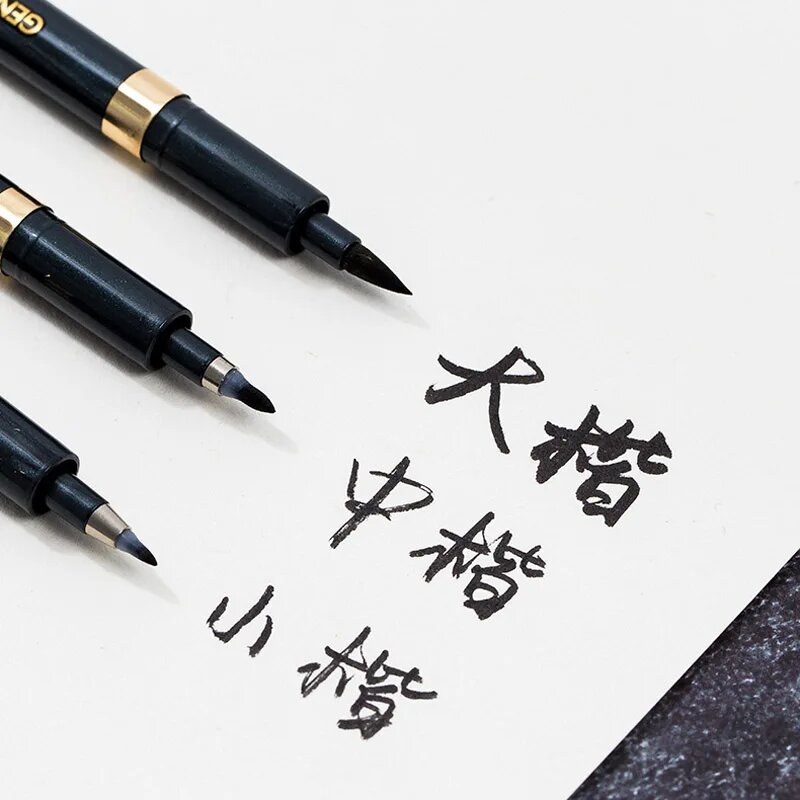 GEN
大楷
中楷
小楷